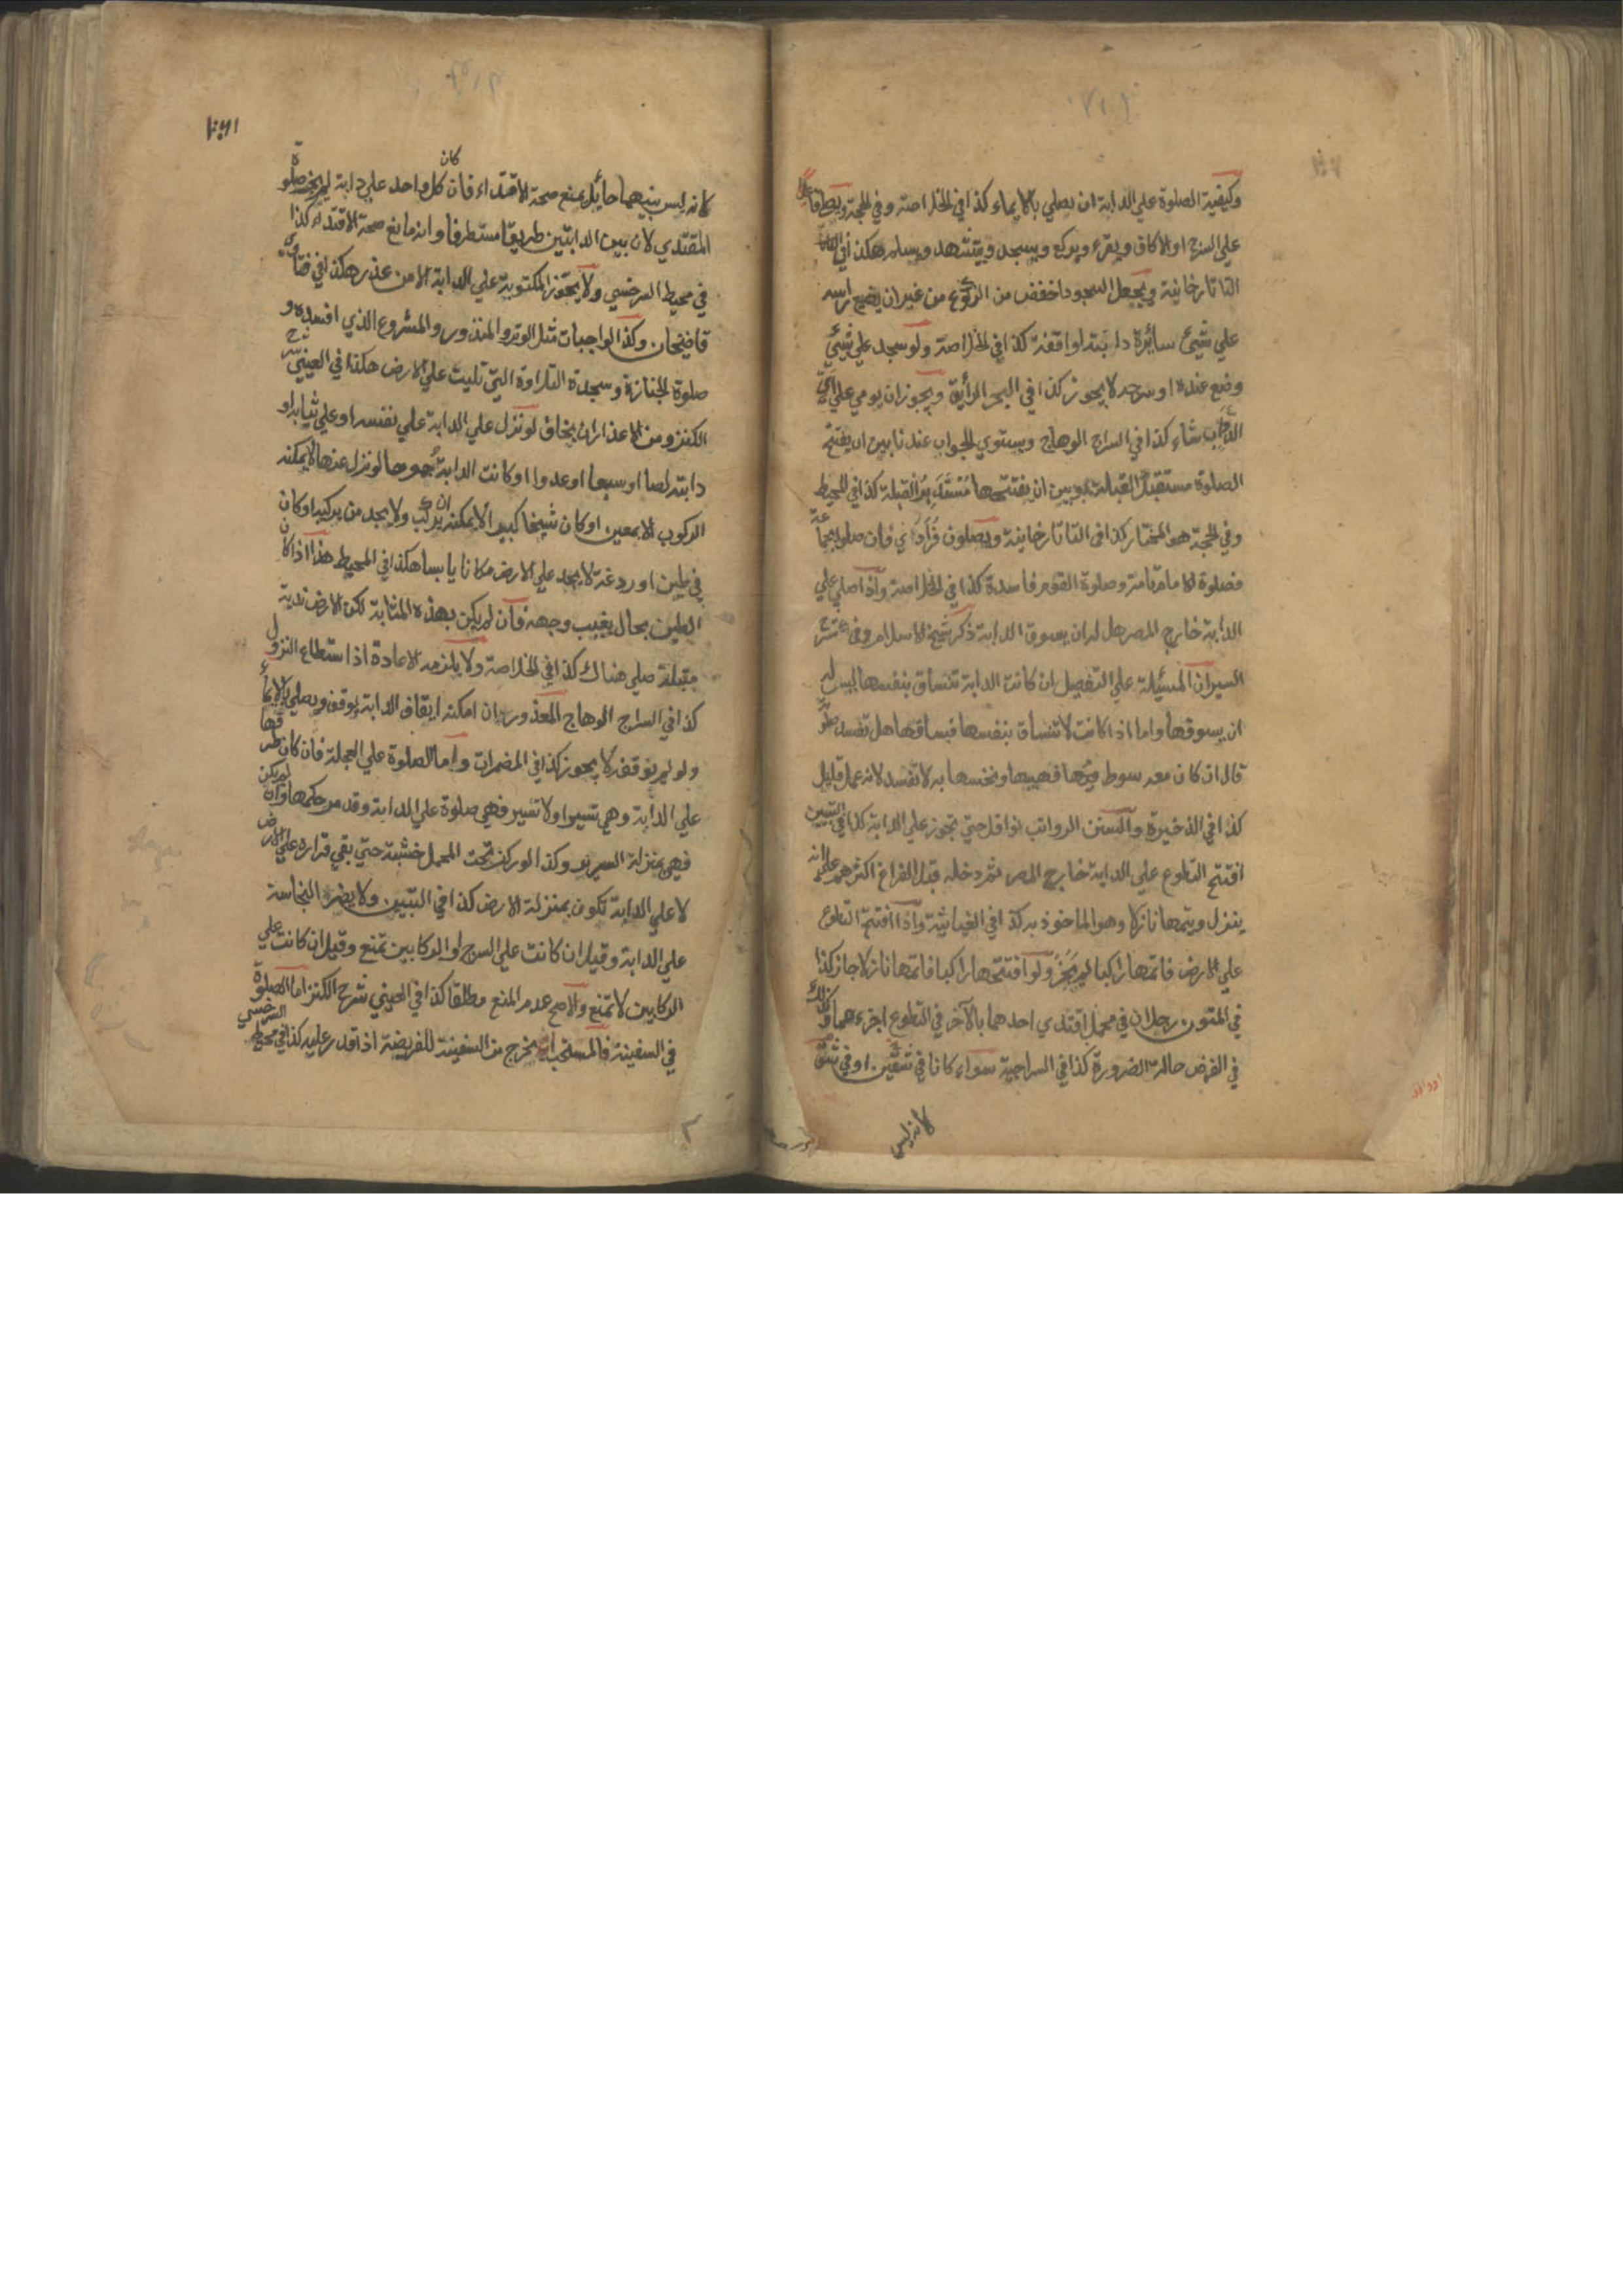 وكيفية الصلوة علي الدابة ان يصلي بالايماء كذا في الخلاصة وفي الحجة ويصلي قاعدا
علي السرج او الاكاف ويقرء ويركع ويسجد ويتشهد ويسلم هكذا في
التاتارخانية ويجعل السجود اخفض من الركوع من غير ان يضع راسه
علي شيئ سائرة دابته او اقفة كذا في الخلاصة ولو سجد علي شيئ
وضع عنده او سرجه لا يجوز كذا في البحر الرأيق ويجوز ان يومي علي اي
الدواب شاء كذا في السراج الوهاج ويستوي الجواب عندنا بين ان يفتتح
الصلوة مستقبل القبلة وبين ان يفتتحها مستدبر القبلة كذا في المحيط
وفي الحجة هو المختار كذا في التاتارخانية ويصلون فرادي فان صلوا بجماعة
فصلوة الامام تامة وصلوة القوم فاسدة كذا في الخلاصة واذا صلي علي
الدابة خارج المصر هل له ان يسوق الدابة ذكر شيخ الاسلام وفي شرح
السير ان المسئيلة علي التفصيل ان كانت الدابة تنساق بنفسها ليس له
ان يسوقها واما اذا كانت لا تنساق بنفسها فساقها هل تفسد صلوته
قال ان كان معه سوط فهيبها ونخسها به لا تفسد لانه عمل قليل
كذا في الذخيرة والسنن الرواتب نوافل حتي تجوز علي الدابة كذا في التبيين
افتتح التطوع علي الدابة خارج المصر ثم دخله قبل الفراغ اكثرهم علي انه
ينزل ويتمها نازلا وهو الماخوذ به كذا في الغياثية واذا افتتح التطوع
علي الارض فاتمها راكبا لم يجز ولو افتتحها راكبا فاتمها نازلا جاز كذا
في المتون رجلان في محمل اقتدي احدهما بالآخر في التطوع اجزءهما وكذلك
في الفرض حالة الضرورة كذا في السراجية سواء كانا في شقين او في شق
لانه ليس
لانه ليس بينهما حائيل يمنع صحة الاقتداء فان كان كل واحد علي دابة لم يجز صلوة
المقتدي لان بين الدابتين طريقا مستطرقا وانه مانع صحة الاقتداء كذا
في محيط السرخسي ولا يجوز المكتوبة علي الدابة الا من عذر هكذا في فتاوي
قاضيخان وكذا الواجبات مثل الوتر والمنذور والمشروع الذي افسده و
صلوة الجنازة وسجدة التلاوة التي تليت علي الارض هكذا في العيني شرح
الكنز ومن الاعذار ان يخاف لو نزل علي الدابة علي نفسه او علي ثيابه او
دابته لصا او سبعا او عدوا او كانت الدابة جموحا لو نزل عنها لا يمكنه
الركوب الا بمعين او كان شيخا كبيرا لا يمكنه ان يركب ولا يجد من يركبه او كان
في طين او ردغة لا يجد علي الارض مكانا يابسا هكذا في المحيط هذا اذا كان
الطين بحال يغيب وجهه فان لم يكن بهذه المثابة لكن الارض ندية
مبتلة صلي هناك كذا في الخلاصة ولا يلزمه الاعادة اذا استطاع النزول
كذا في السراج الوهاج المعذور ان امكنه ايقاف الدابة يوقف ويصلي بالايماء
ولو لم يوقف لا يجوز كذا في المضمرات واما الصلوة علي العجلة فان كان طرفها
علي الدابة وهي تسير او لا تسير فهي صلوة علي الدابة وقد مر حكمها وان لم يكن
فهي بمنزلة السرير وكذا لو ركز تحت المحمل خشبة حتي بقي قراره علي الارض
لا علي الدابة تكون بمنزلة الارض كذا في التبيين ولا يضره النجاسة
علي الدابة وقيل ان كانت علي السرج او الركابين تمنع وقيل ان كانت علي
الركابين لا تمنع والاصح عدم المنع مطلقا كذا في العيني شرح الكنز اما الصلوة
في السفينة فالمستحب ان يخرج من السفينة للفريضة اذا قدر عليه كذا في محيط السرخسي